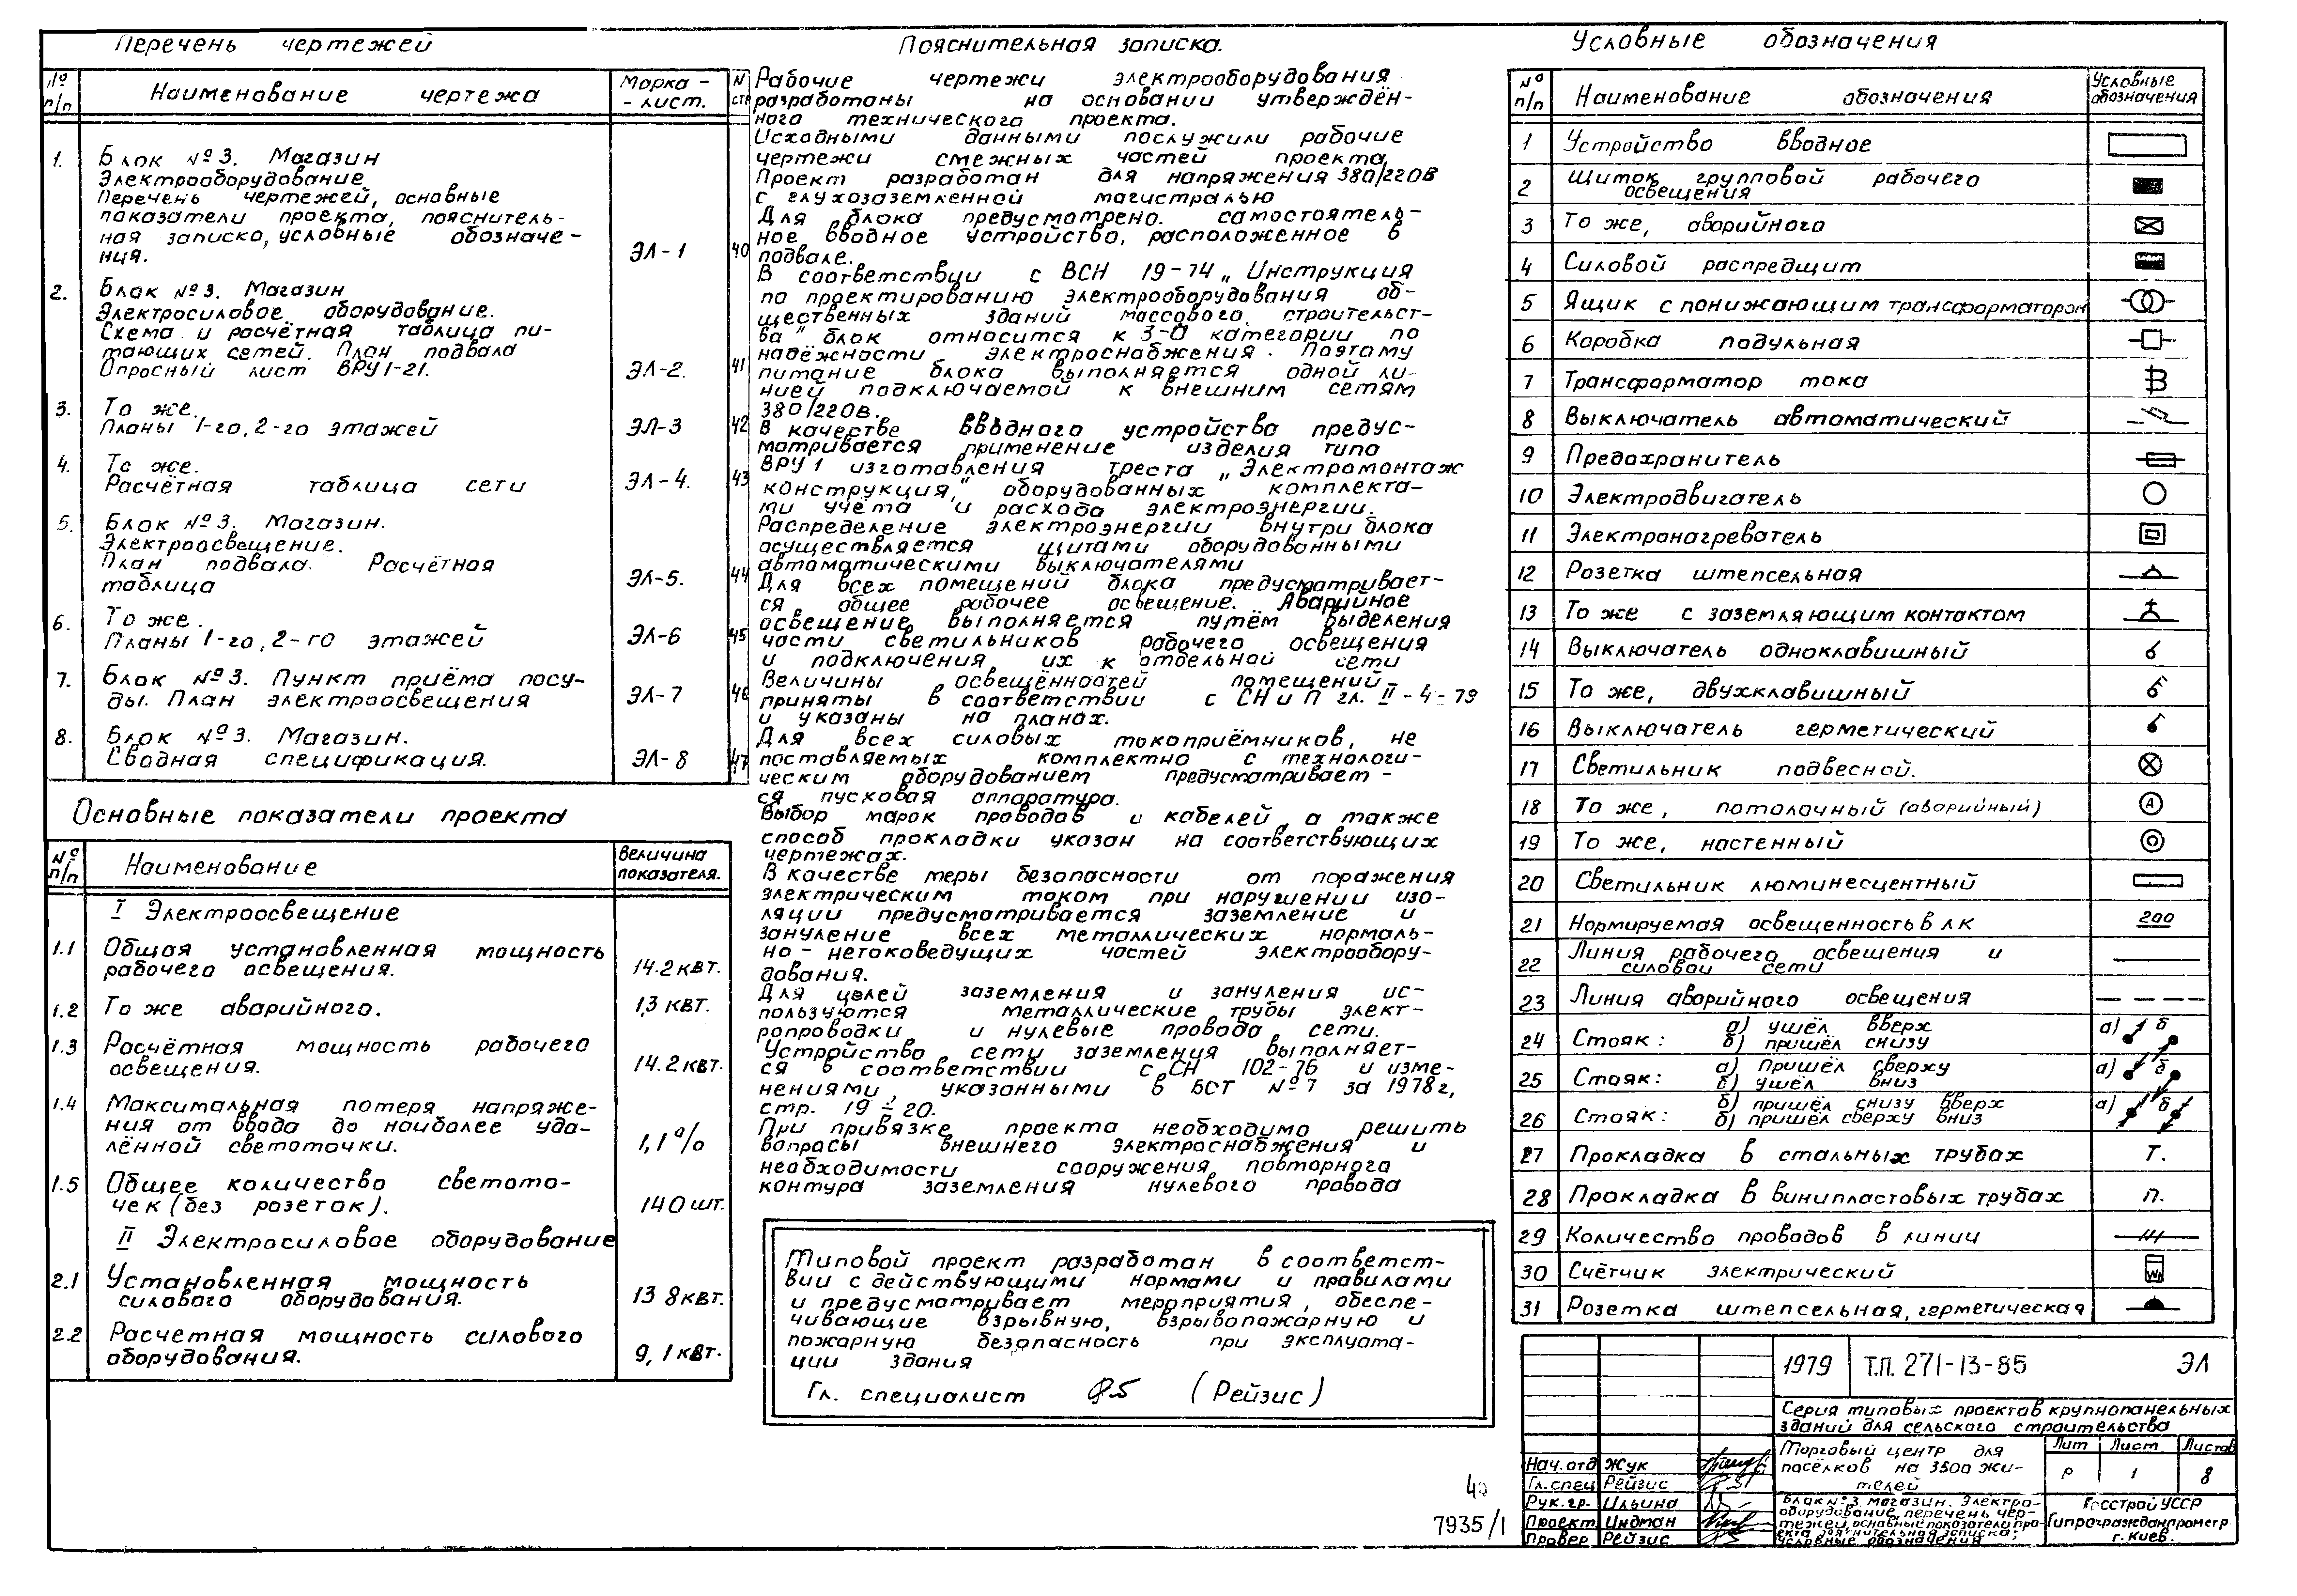 Перечень чертежей
№ п/п
Наименование чертежа
Марка -
- лист.
N стр
1. Блок №3. Магазин
Электрооборудование
Перечень чертежей, основные
показатели проекта, пояснитель-
ная записка, условные обозначе-
ния. ЭЛ-1 40
2. Блок №3. Магазин
Электросиловое оборудование.
Схема и расчётная таблица пи-
тающих сетей. План подвала
Опросный лист ВРУ1-21. ЭЛ-2. 41
3. То же.
Планы 1-го, 2-го этажей ЭЛ-3 42
4. То же.
Расчётная таблица сети ЭЛ-4. 43
5. Блок №3. Магазин.
Электроосвещение.
План подвала. Расчётная
таблица ЭЛ-5. 44
6. То же.
Планы 1-го, 2-го этажей ЭЛ-6 45
7. Блок №3. Пункт приёма посу-
ды. План электроосвещения ЭЛ-7 46
8. Блок №3. Магазин.
Сводная спецификация. ЭЛ-8 47
Основные показатели проекта
№ п/п
Наименование
Величина
показателя.
I Электроосвещение
1.1 Общая установленная мощность
рабочего освещения. 14.2 квт.
1.2 То же аварийного. 1,3 квт.
1.3 Расчётная мощность рабочего
освещения. 14.2 квт.
1.4 Максимальная потеря напряже-
ния от ввода до наиболее уда-
лённой светоточки. 1,1%
1.5 Общее количество светото-
чек (без розеток). 140 шт.
II Электросиловое оборудование
2.1 Установленная мощность
силового оборудования. 13 8 квт.
2.2 Расчетная мощность силового
оборудования. 9,1 квт.
Пояснительная записка.
Рабочие чертежи электрооборудования
разработаны на основании утверждён-
ного технического проекта.
Исходными данными послужили рабочие
чертежи смежных частей проекта,
Проект разработан для напряжения 380/220В
с глухозаземленной магистралью
Для блока предусмотрено. самостоятель-
ное вводное устройство, расположенное в
подвале.
В соответствии с ВСН 19-74 „Инструкция
по проектированию электрооборудования об-
щественных зданий массового строительст-
ва" блок относится к 3-й категории по
надёжности электроснабжения. Поэтому
питание блока выполняется одной ли-
нией подключаемой к внешним сетям
380/220в.
В качестве вводного устройства предус-
матривается применение изделия типа
ВРУ1 изготавления треста „Электромонтаж
конструкция," оборудованных комплекта-
ми учёта и расхода электроэнергии.
Распределение электроэнергии внутри блока
осуществляется щитами оборудованными
автоматическими выключателями
Для всех помещений блока предусматривает-
ся общее рабочее освещение. Аварийное
освещение выполняется путём выделения
части светильников рабочего освещения
и подключения их к отдельной сети
Величины освещённостей помещений
приняты в соответствии с СНиП гл. II-4-79
и указаны на планах.
Для всех силовых токоприёмников, не
поставляемых комплектно с технологи-
ческим оборудованием предусматривает-
ся пусковая аппаратура.
Выбор марок проводов и кабелей, а также
способ прокладки указан на соответствующих
чертежах.
В качестве меры безопасности от поражения
электрическим током при нарушении изо-
ляции предусматривается заземление и
зануление всех металлических нормаль-
но-нетоковедущих частей электрообору-
дования.
Для целей заземления и зануления ис-
пользуются металлические трубы элект-
ропроводки и нулевые провода сети.
Устройство сети заземления выполняет-
ся в соответствии с СН 102-76 и изме-
нениями, указанными в БСТ №7 за 1978г,
стр. 19÷20.
При привязке проекта необходимо решить
вопросы внешнего электроснабжения и
необходимости сооружения повторного
контура заземления нулевого провода
Типовой проект разработан в соответст-
вии с действующими нормами и правилами
и предусматривает мероприятия, обеспе-
чивающие взрывную, взрывопожарную и
пожарную безопасность при эксплуата-
ции здания
Гл. специалист (Рейзис)
7935/1
Условные обозначения
№ п/п
Наименование обозначения
Условные
обозначения
1 Устройство вводное
2 Щиток групповой рабочего
освещения
3 То же, аварийного
4 Силовой распредщит
5 Ящик с понижающим трансформаторам
6 Коробка подульная
7 Трансформатор тока
8 Выключатель автоматический
9 Предохранитель
10 Электродвигатель
11 Электронагреватель
12 Розетка штепсельная
13 То же с заземляющим контактом
14 Выключатель одноклавишный
15 То же, двухклавишный
16 Выключатель герметический
17 Светильник подвесной.
18 То же, потолочный (аварийный) А
19 То же, настенный
20 Светильник люминесцентный
21 Нормируемая освещенность в лк 200
22 Линия рабочего освещения и
силовой сети
23 Линия аварийного освещения
24 Стояк: а) ушёл вверх
б) пришёл снизу а) б
25 Стояк: а) Пришёл сверху
б) ушёл вниз а) б
26 Стояк: б) пришёл снизу вверх
б) пришёл сверху вниз а) б
27 Прокладка в стальных трубах Т.
28 Прокладка в винипластовых трубах П.
29 Количество проводов в линии
30 Счётчик электрический Wh
31 Розетка штепсельная, герметическая
1979 Т.П. 271-13-85 ЭЛ
Серия типовых проектов крупнопанельных
зданий для сельского строительства
Торговый центр для
посёлков на 3500 жи-
телей
Лит Лист Листов
Р 1 8
Нач.отд Жук
Гл.спец Рейзис
Рук.гр. Ильина
Проект Индман
Провер Рейзис
Блок №3 магазин. Электро-
оборудование, перечень чер-
тежей, основные показатели про-
екта пояснительная записка;
условные обозначения
Госстрой УССР
Гипрогражданпромстр
г. Киев.